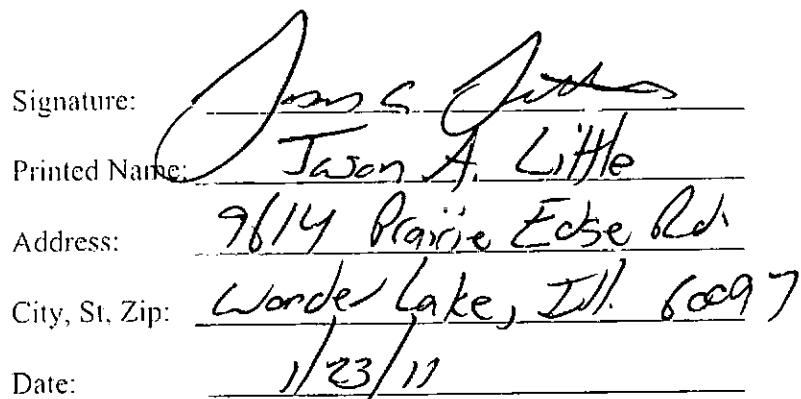 Signature: Jason A Little
Printed Name: Jason A. Little
Address: 9614 Prairie Edge Rd.
City, St, Zip: Wonder Lake, Ill. 60097
Date: 1/23/11